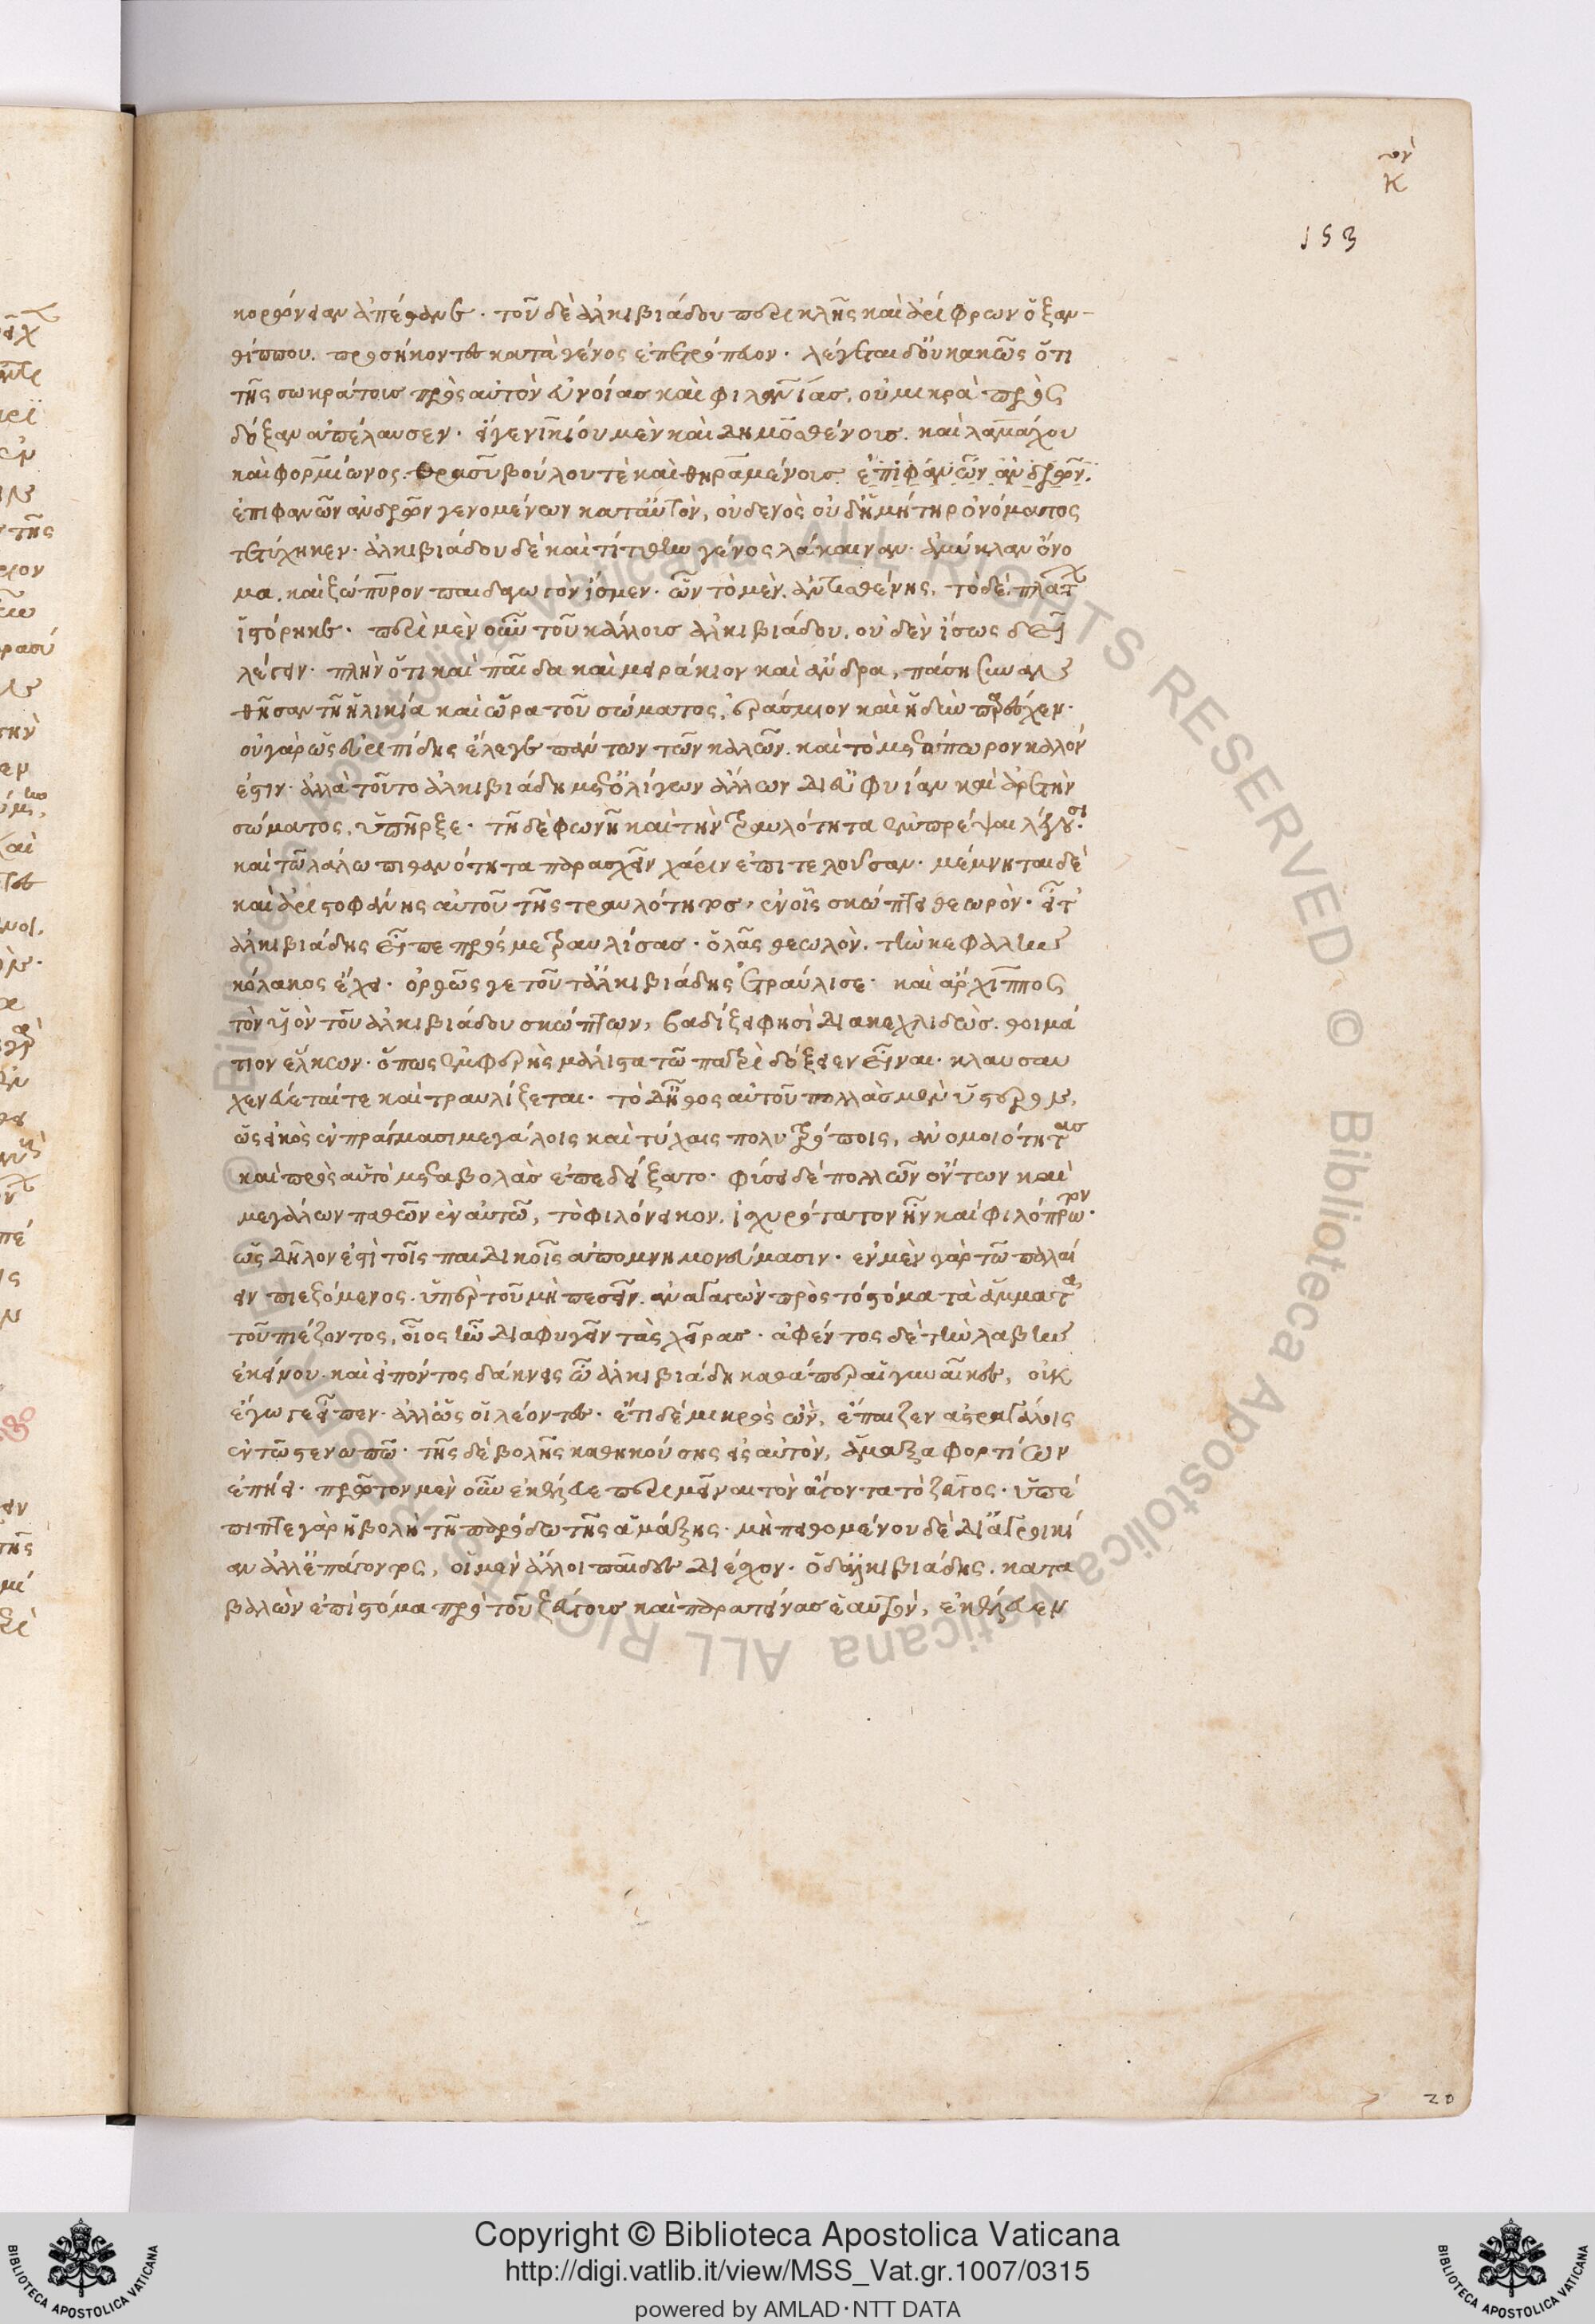 κ
153
κορώνειαν ἀπέθανε. τοῦ δὲ ἀλκιβιάδου περικλῆς καὶ ἀρίφρων ὁ ξαν-
θίππου. προσήκοντες κατὰ γένος ἐπετρόπευον. λέγεται δ' οὐ κακῶς ὅτι
τῆς σωκράτους πρὸς αὐτὸν εὐνοίας καὶ φιλανίας, οὐ μικρὰ πρὸς
δόξαν ἀπέλαυσεν. εἴγε νικίου μὲν καὶ δημοσθένους. καὶ λαμάχου
καὶ φορμίωνος. θρασυβούλου τὲ καὶ θηραμένους ἐπιφανῶν ἀνδρῶν.
ἐπιφανῶν ἀνδρῶν γενομένων κατ' αὐτὸν, οὐδενὸς οὐδ' ἡ μήτηρ ὀνόματος
τετύχηκεν. ἀλκιβιάδου δὲ καὶ τίτθην γένος λάκαιναν. ἀμύκλαν ὄνο
μα. καὶ ζώπυρον παιδαγωγὸν ἴσμεν. ὧν τὸ μὲν ἀντισθένης, τὸ δὲ πλάτ
ἱστόρηκε. περὶ μὲν οὖν τοῦ κάλλους ἀλκιβιάδου. οὐδὲν ἴσως δεῖ
λέγειν. πλὴν ὅτι καὶ παῖδα καὶ μειράκιον καὶ ἄνδρα, πάσῃ συναν
θῆσαν τῇ ἡλικίᾳ καὶ ὥρα τοῦ σώματος, ἐράσμιον καὶ ἡδὺν παρέσχεν.
οὐ γὰρ ὡς εὐριπίδης ἔλεγε πάντων τῶν καλῶν. καὶ τὸ μετόπωρον καλόν
ἐστιν. ἀλλὰ τοῦτο ἀλκιβιάδῃ μετ' ὀλίγων ἄλλων δι' εὐφυίαν καὶ ἀρετὴν
σώματος, ὑπῆρξε. τῇ δὲ φωνῇ καὶ τὴν τραυλότητα ἐμπρέψαι λέγουσι.
καὶ τῷ λάλῳ πιθανότητα παρασχεῖν χάριν ἐπιτελοῦσαν. μέμνηται δὲ
καὶ ἀριστοφάνης αὐτοῦ τῆς τραυλότητος, ἐν οἷς σκώπτει θέωρον. εἶτ'
ἀλκιβιάδης εἶπε πρός με τραυλίσας. ὁλᾷς θέωλον. τὴν κεφαλὴν
κόλακος ἔχει. ὀρθῶς γε τοῦτ' ἀλκιβιάδης ἐτραύλισε. καὶ ἄρχιππος
τὸν υἱὸν τοῦ ἀλκιβιάδου σκώπτων, βαδίζει φησὶ διακεχλιδώς. θοἰμά
τιον ἕλκων. ὅπως ἐμφερὴς μάλιστα τῷ πατρὶ δόξειεν εἶναι. κλαυσαυ
χενεύεται τε καὶ τραυλίζεται. τὸ δ' ἦθος αὐτοῦ πολλὰς μὲν ὕστερον,
ὡς εἰκὸς ἐν πράγμασι μεγάλοις καὶ τύχαις πολυτρόποις, ἀνομοιότητας
καὶ πρὸς αὑτὸ μεταβολὰς ἐπεδείξατο. φύσει δὲ πολλῶν ὄντων καὶ
μεγάλων παθῶν ἐν αὐτῷ, τὸ φιλόνεικον, ἰσχυρότατον ἦν καὶ φιλόπρωτον.
ὡς δῆλόν ἐστι τοῖς παιδικοῖς ἀπομνημονεύμασιν. ἐν μὲν γὰρ τῷ παλαί
ειν πιεζόμενος. ὑπὲρ τοῦ μὴ πεσεῖν. ἀναγαγὼν πρὸς τὸ στόμα τὰ ἅμματα
τοῦ πιέζοντος, οἷος ἦν διαφυγεῖν τὰς χεῖρας. ἀφέντος δὲ τὴν λαβὴν
ἐκείνου. καὶ εἰπόντος δάκνεις ὦ ἀλκιβιάδη καθάπερ αἱ γυναῖκες, οὐκ
ἔγωγε εἶπεν. ἀλλ' ὡς οἱ λέοντες. ἔτι δὲ μικρὸς ὢν, ἔπαιζεν ἀστραγάλοις
ἐν τῷ στενωπῷ. τῆς δὲ βολῆς καθηκούσης εἰς αὐτὸν, ἅμαξα φορτίων
ἐπῄει. πρῶτον μὲν οὖν ἐκέλευε περιμεῖναι τὸν ἄγοντα τὸ ζεῦγος. ὑπέ
πιπτε γὰρ ἡ βολὴ τῇ παρόδῳ τῆς ἁμάξης. μὴ πειθομένου δὲ δι' ἀγροικί
αν ἀλλ' ἐπάγοντος, οἱ μὲν ἄλλοι παῖδες διέσχον. ὁ δ' ἀλκιβιάδης. κατα
βαλὼν ἐπὶ στόμα πρὸ τοῦ ζεύγους καὶ παρατείνας ἑαυτὸν, ἐκέλευεν
20
Copyright © Biblioteca Apostolica Vaticana
http://digi.vatlib.it/view/MSS_Vat.gr.1007/0315
powered by AMLAD·NTT DATA